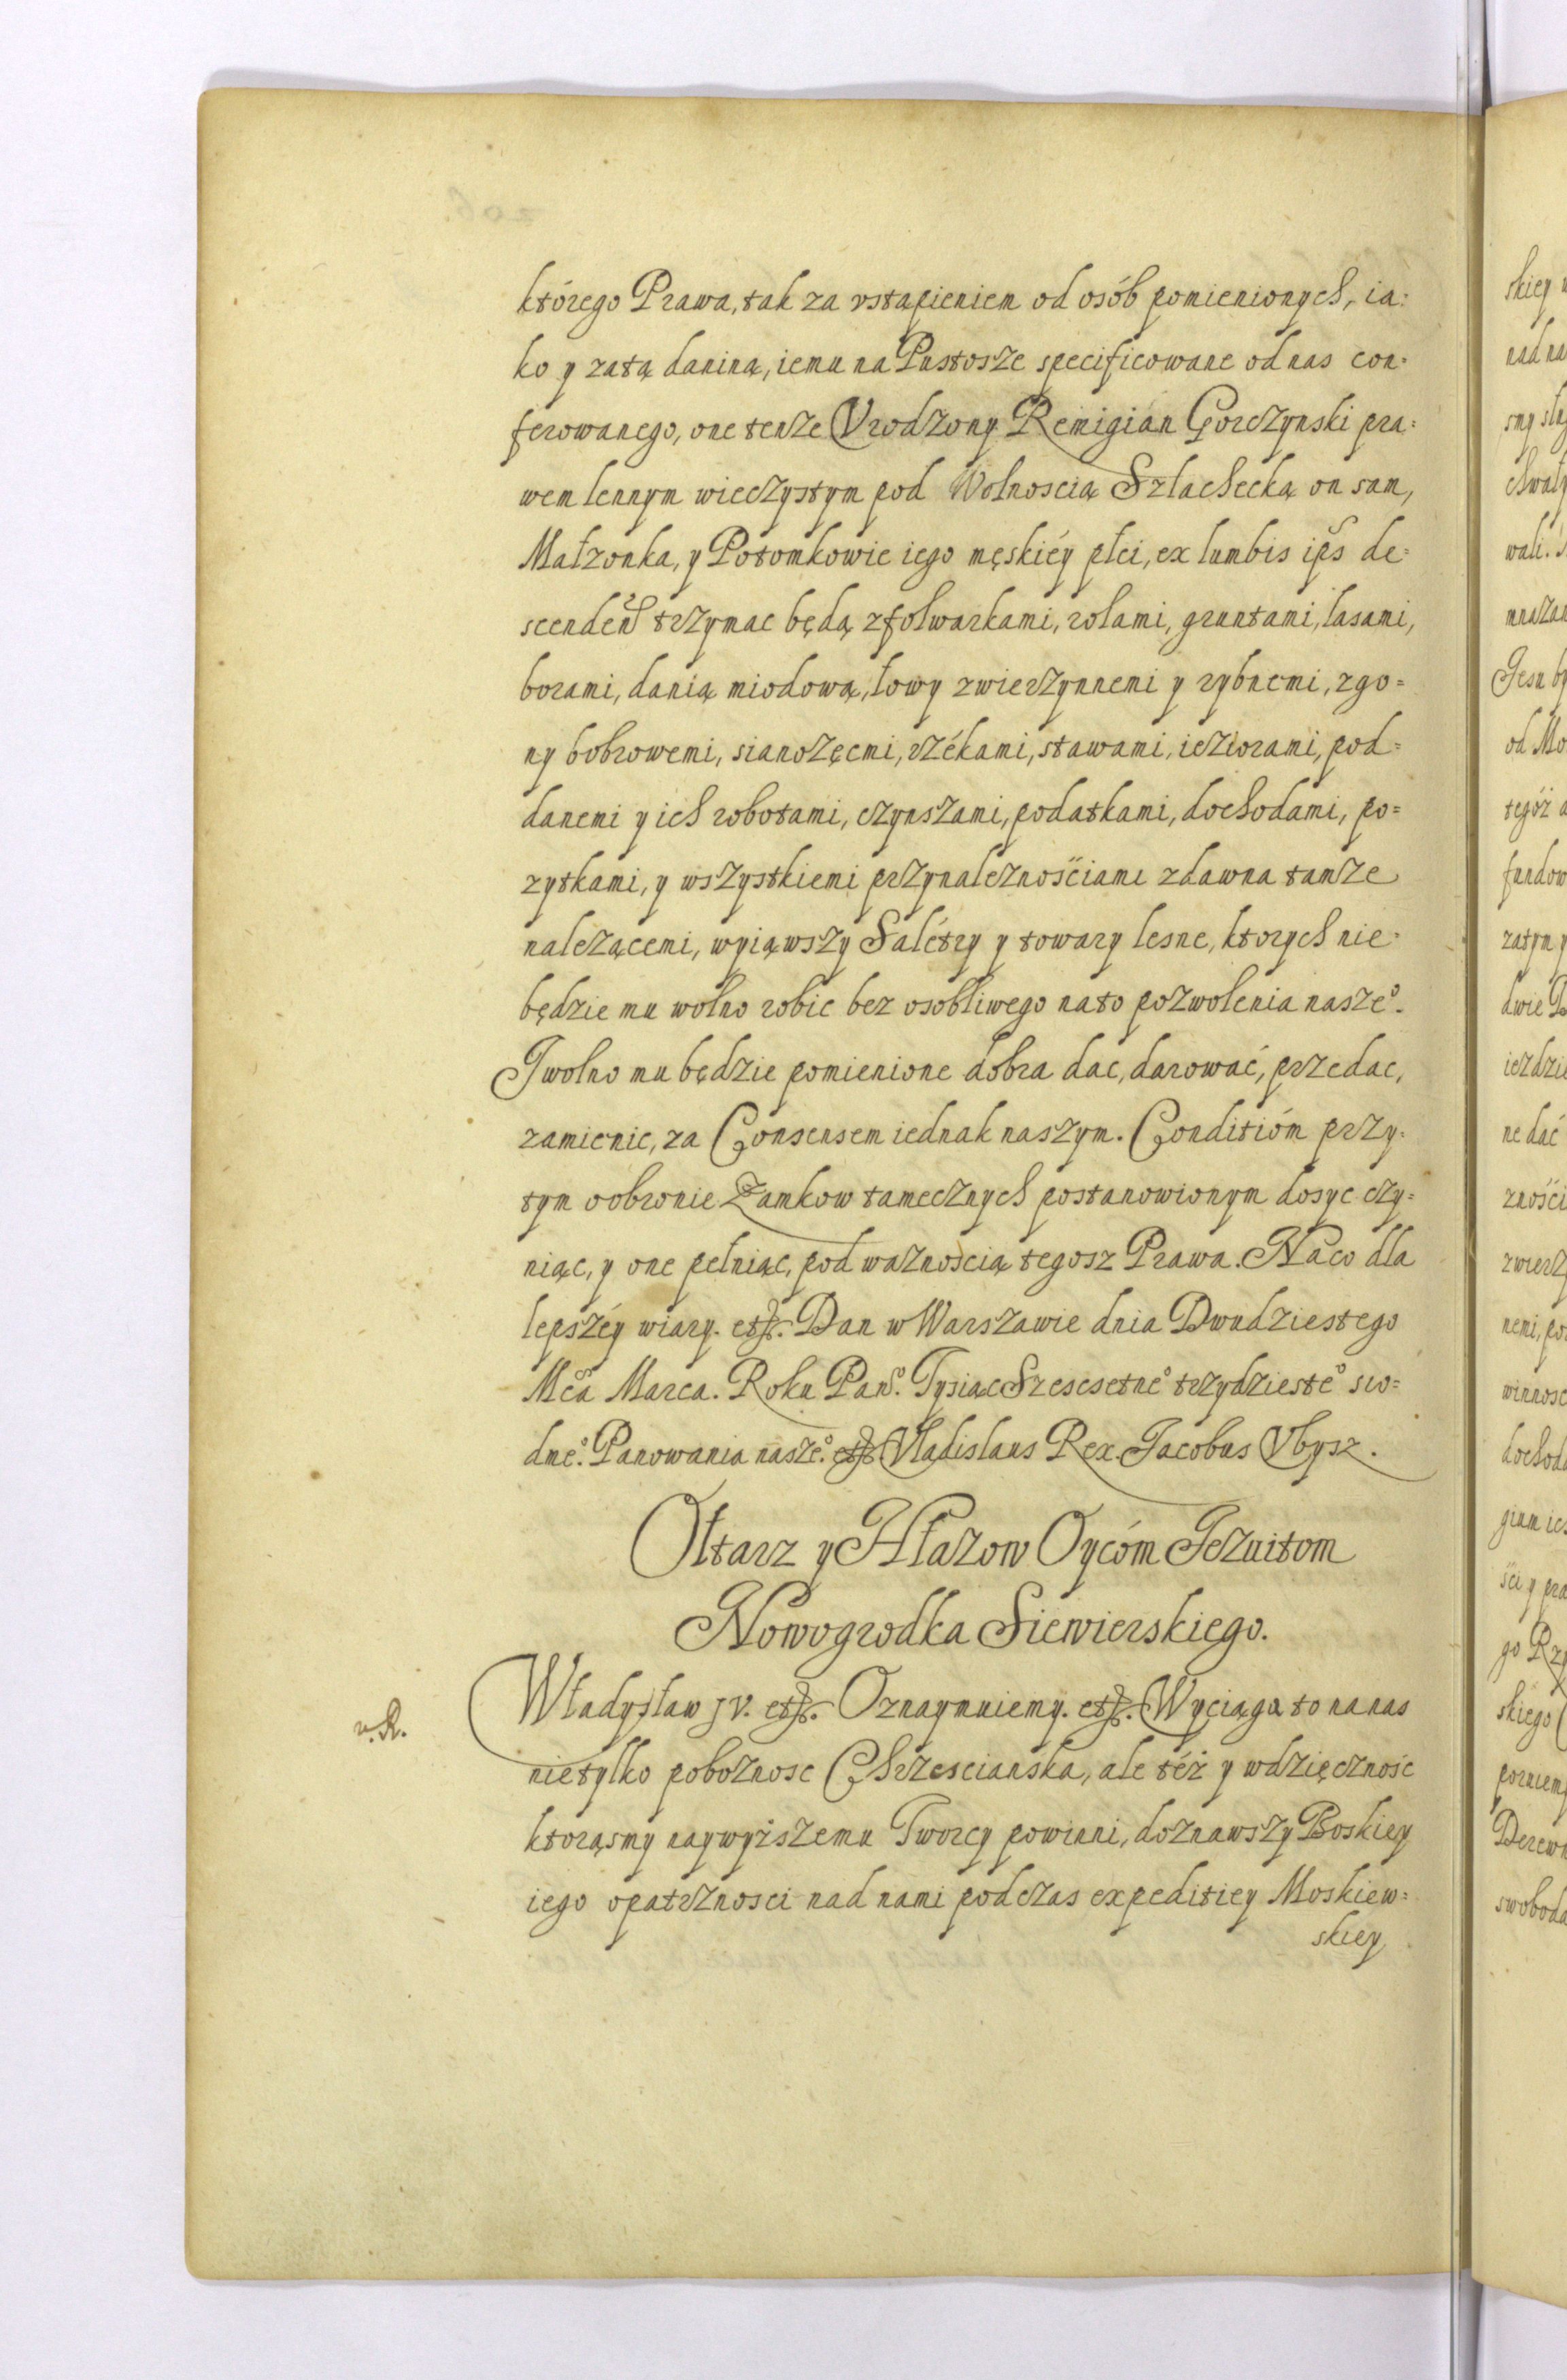 którego Prawa, tak za vstąpieniem od osób pomienionych, ia=
ko y zatą daniną, iemu na Pustosze specificowane od nas con=
ferowanego, one tenze Vrodzony Remigián Gorczynski pra=
wem lennym wieczystym pod Wolnoscią Szlachecką on sam,
Małzonka, y Potomkowie iego męskiéy płci, ex lumbis ips de=
scenden trzymac będą zfolwarkami, rolami, gruntami, lasami,
borami, danią miodową, łowy zwierzynnemi y rybnemi, zgo=
ny bobrowemi, sianozęcmi, rzékami, stawami, ieziorami, pod=
danemi y ich robotami, czynszami, podatkami, dochodami, po=
zytkami, y wszystkiemi przynaleznościami zdawna tamze
nalezącemi, wyiąwszy Salétry y towary lesne, ktorych nie=
będzie mu wolno robic bez osobliwego nato pozwolenia nasze°.
I wolno mu będzie pomienione dobra dac, darować, przedac,
zamienic, za Consensem iednak naszym. Conditióm przy=
tym oobronie Zamkow tamecznych postanowionym dosyc czy=
niąc, y one pełniąc, pod waznoscią tegosz Prawa. Naco dla
lepszéy wiary. etc. Dan w Warszawie dnia Dwudziestego
Mca Marca. Roku Pans°. Tysiąc Szescsetne° trzydzieste° sio=
dme°. Panowania nasze°. etc Vladislaus Rex. Jacobus Vbysz.
Ołtarz y Hłazow Oycóm Jezuitom
Nowogrodka Siewierskiego.
v. R.
Władysław IV. etc. Oznaymuiemy. etc. Wyciąga to na nas
nietylko poboznosc Chrzescianska, ale téż y wdzięcznośc
ktorąsmy naywyższemu Tworcy powinni, doznawszy Boskiey
iego opatrznosci nad nami podczas expeditiey Moskiew=
skiey